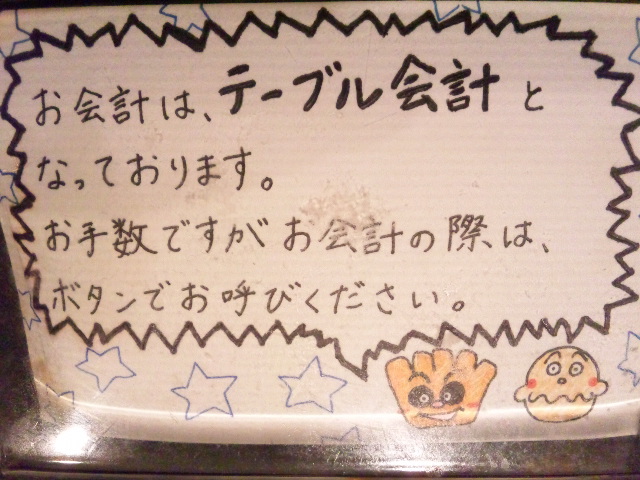 お会計は、テーブル会計と
なっております。
お手数ですがお会計の際は、
ボタンでお呼びください。